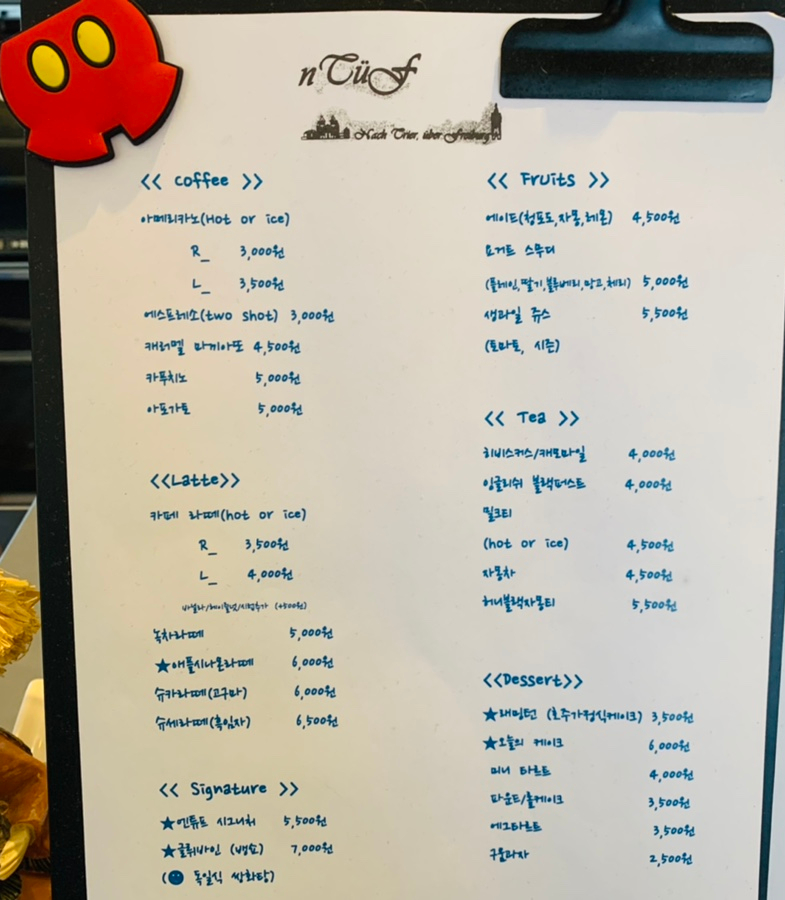 nTüF
Nach Trier, über Freiburg
<< Coffee >>
아메리카노(Hot or ice)
R_ 3,000원
L_ 3,500원
에스프레소(two shot) 3,000원
캐러멜 마끼아또 4,500원
카푸치노 5,000원
아포가토 5,000원
<<Latte>>
카페 라떼(hot or ice)
R_ 3,500원
L_ 4,000원
바닐라/헤이즐넛/시럽추가 (+500원)
녹차라떼 5,000원
★애플시나몬라떼 6,000원
슈카라떼(고구마) 6,000원
슈세라떼(흑임자) 6,500원
<< Signature >>
★엔튜프 시그니처 5,500원
★글뤼바인 (뱅쇼) 7,000원
( 독일식 쌍화탕)
<< Fruits >>
에이드(청포도,자몽,레몬) 4,500원
요거트 스무디
(플레인,딸기,블루베리,망고,체리) 5,000원
생과일 쥬스 5,500원
(토마토, 시즌)
<< Tea >>
히비스커스/캐모마일 4,000원
잉글리쉬 블랙퍼스트 4,000원
밀크티
(hot or ice) 4,500원
자몽차 4,500원
허니블랙자몽티 5,500원
<<Dessert>>
★래밍턴 (호주가정식케이크) 3,500원
★오늘의 케이크 6,000원
미니 타르트 4,000원
파운드/롤케이크 3,500원
에그타르트 3,500원
구움과자 2,500원